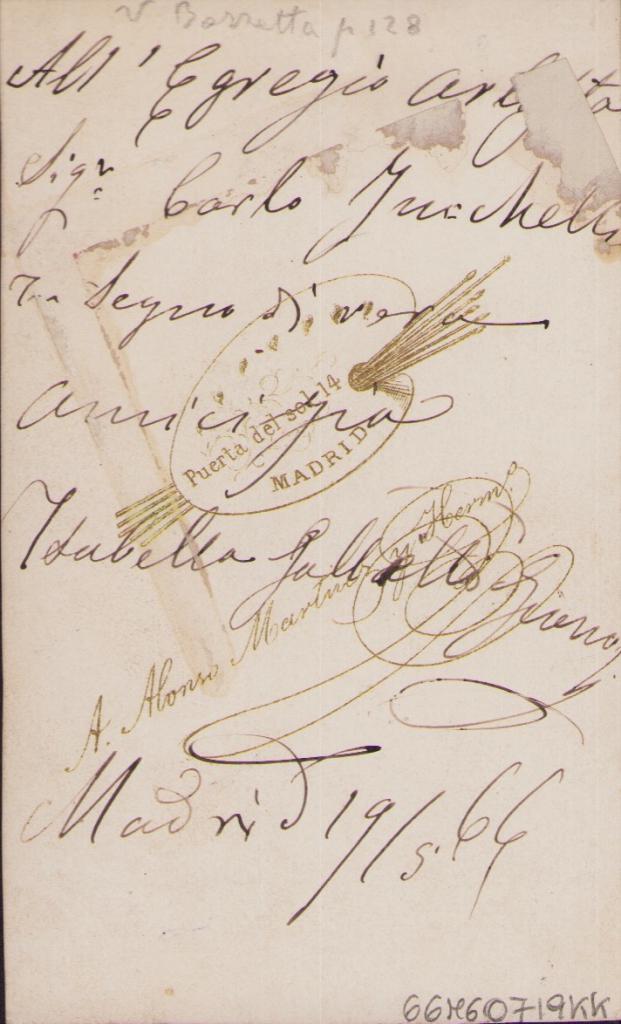 v Borretta p 128
All' Egregio artista
Sigr. Carlo Jucchelli
In Segno di vera
amicizia
Puerta del sol 14
MADRID
Isabella Galletti Gianoli
A. Alonso Martinez y Herm.
Madrid 19/5 66
66M60719KK